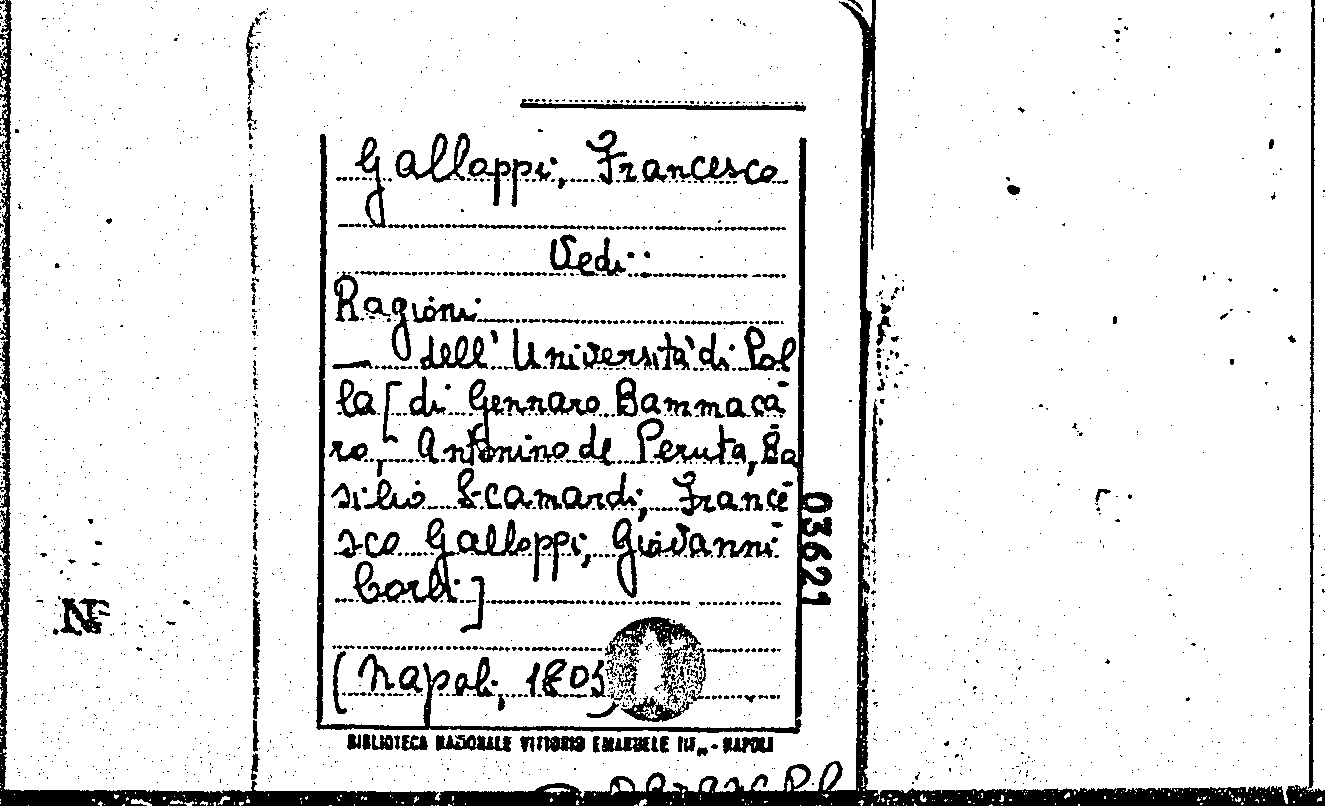 Galloppi, Francesco
Vedi:
Ragioni
— dell'Università di Pol
la [di Gennaro Bammaca
ro, Antonino de Peruta, Ba
silio Scamardi, France
sco Galloppi, Giovanni
Corbi]
(Napoli, 1805)
03621
BIBLIOTECA NAZIONALE VITTORIO EMANUELE III - NAPOLI